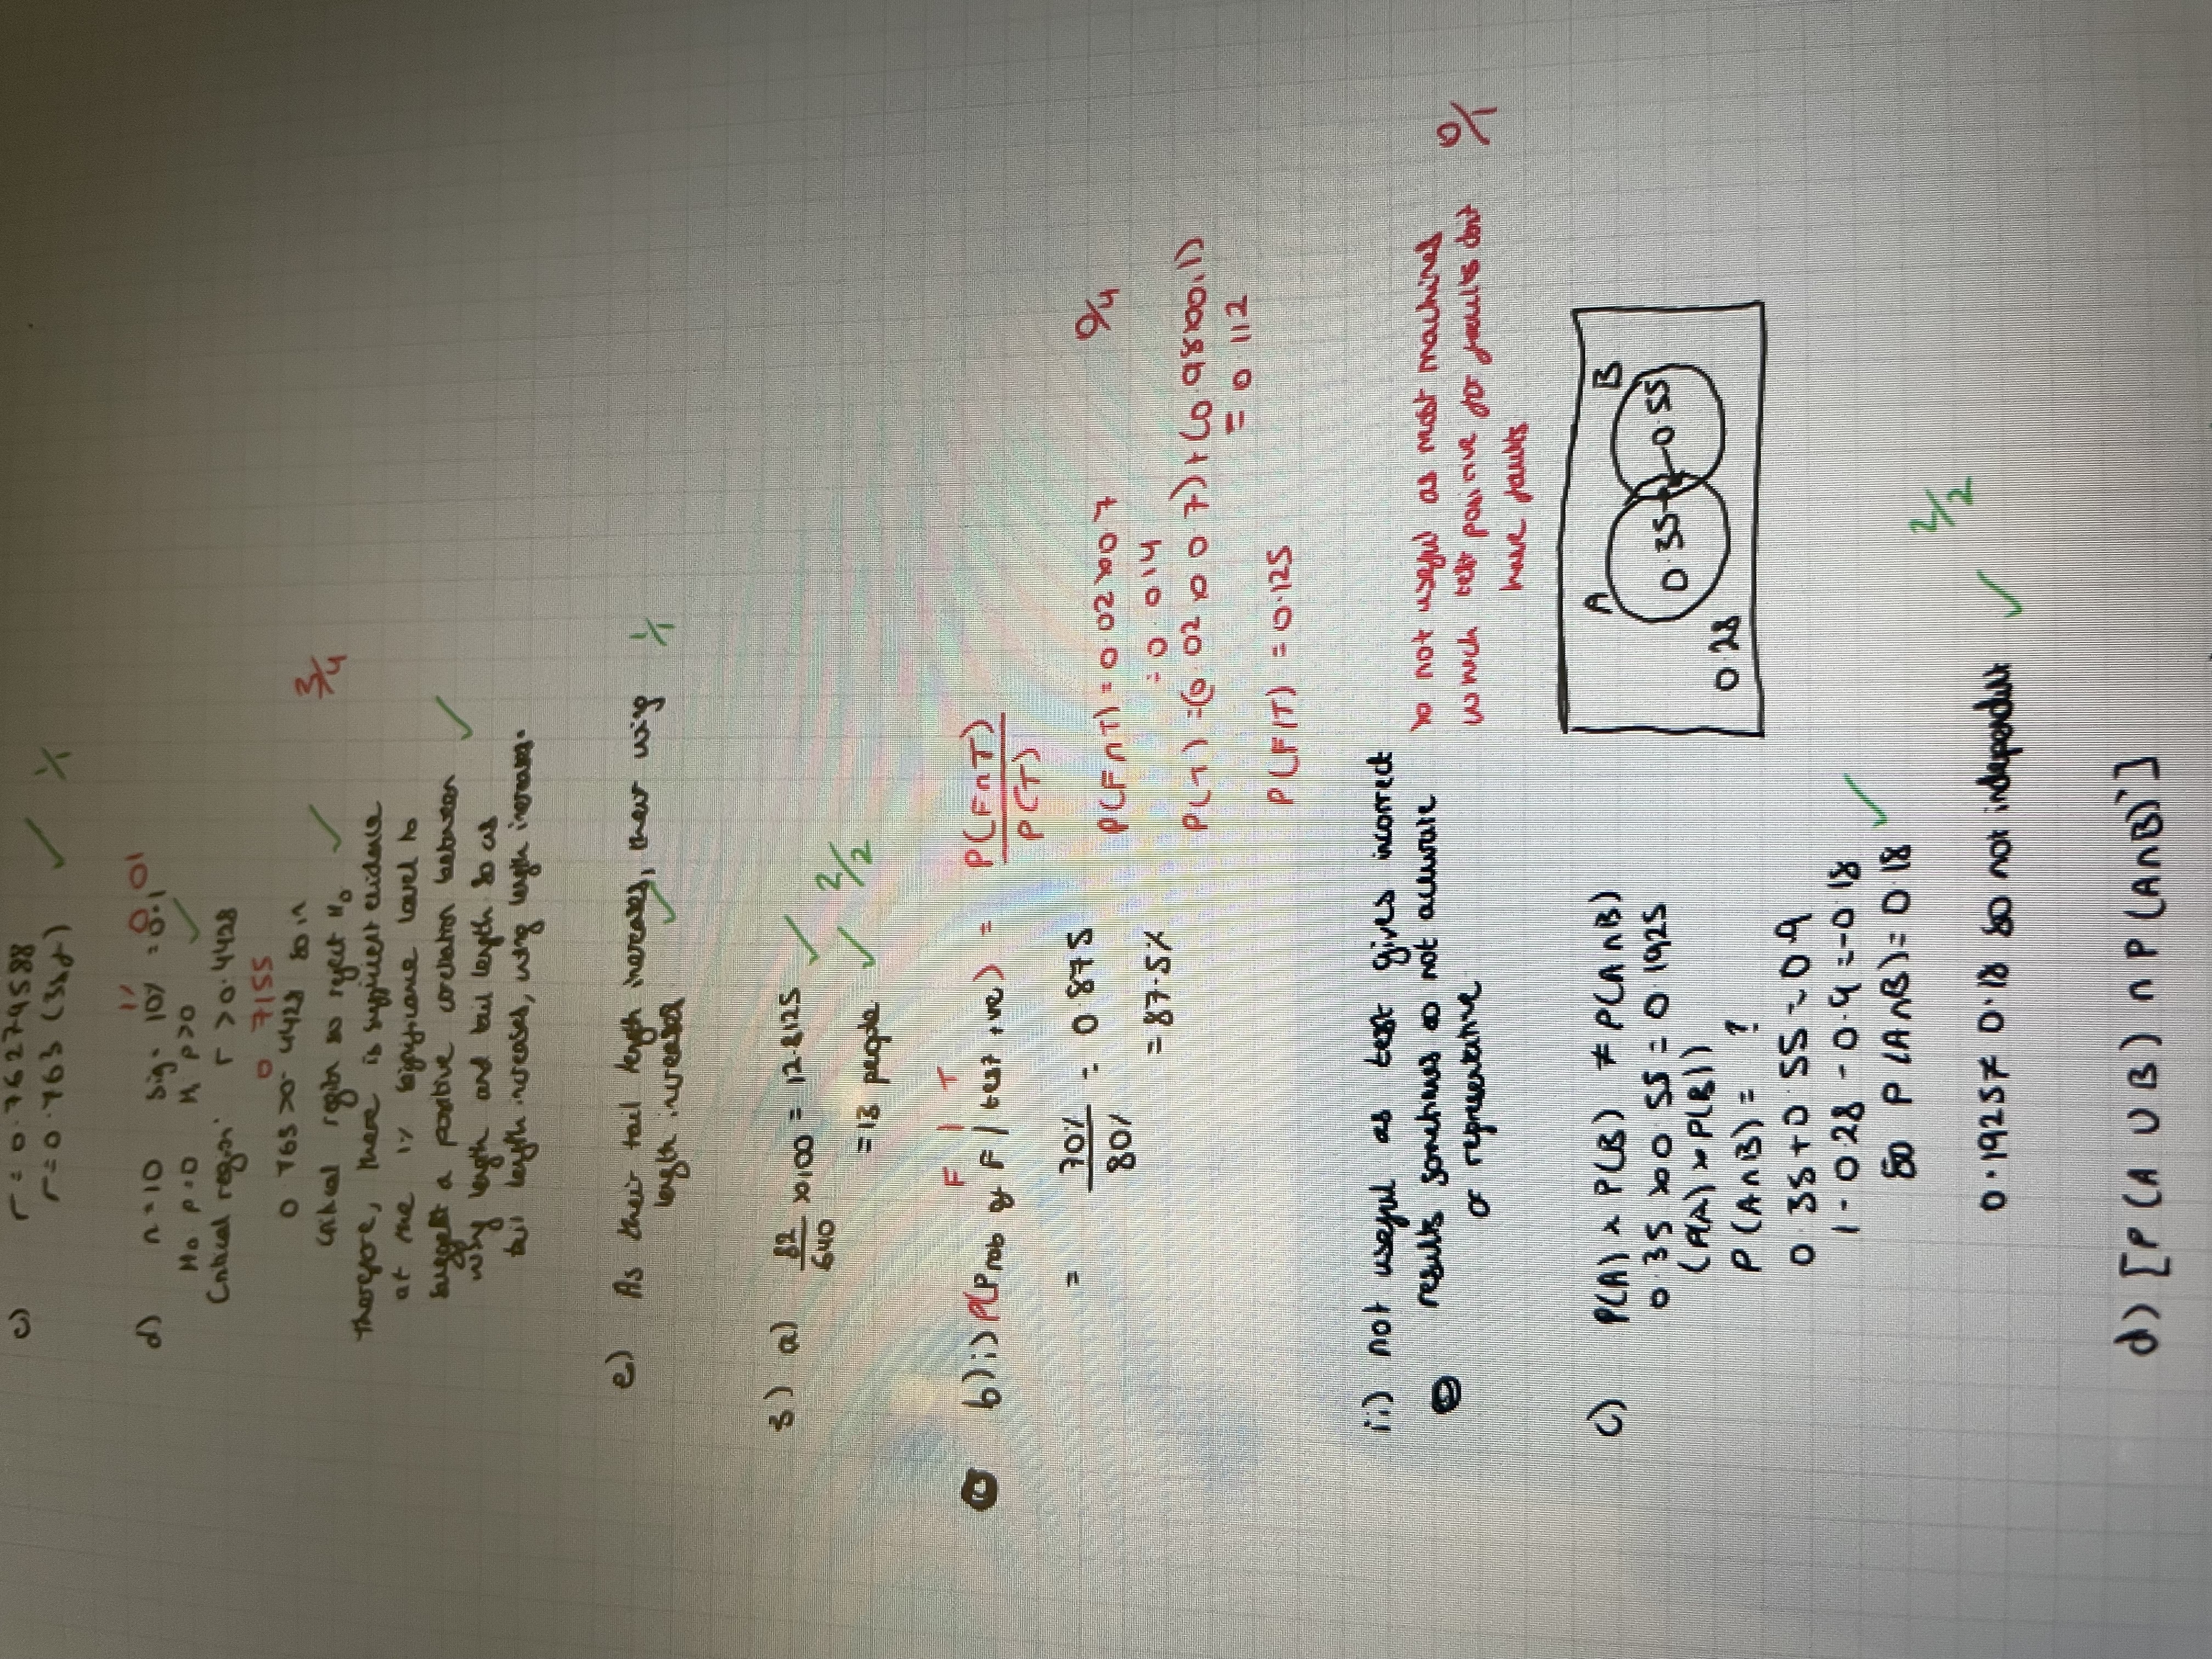 c) r = 0.76279588
r = 0.763 (3sf) ✓ 1/1
1% 0.01
d) n = 10 sig. 10% = 0.1
H₀ p = 0 H₁ p > 0 ✓
Critical region: r > 0.4428
0.7155
0.763 > 0.4428 so in
critical region so reject H₀ ✓ 3/4
Therefore, there is sufficient evidence
at the 1% significance level to
suggest a positive correlation between ✓
wing length and tail length so as
tail length increases, wing length increases.
e) As their tail length increases, their wing ✓ 1/1
length increases
3) a) 82/640 × 100 = 12.8125 ✓
= 13 people ✓ 2/2
F | T
b) i) P(Prob of F / test +ve) = P(F∩T)/P(T)
= 70%/80% = 0.875
= 87.5%
P(F∩T) = 0.02 × 0.7 0/4
= 0.014
P(T) = (0.02 × 0.7) + (0.98 × 0.1)
= 0.112
P(F|T) = 0.125
ii) not useful as test gives incorrect
results sometimes so not accurate
or representative
not useful as most machines 0/1
which test positive for faults don't
have faults
c) P(A) × P(B) ≠ P(A∩B)
0.35 × 0.55 = 0.1925
(P(A) × P(B))
P(A∩B) = ?
0.35 + 0.55 = 0.9
1 - 0.28 - 0.9 = -0.18
so P(A∩B) = 0.18 ✓
A B
0.35 0.55
0.28
0.1925 ≠ 0.18 so not independent ✓ 2/2
d) [P(A∪B) ∩ P(A∩B)']